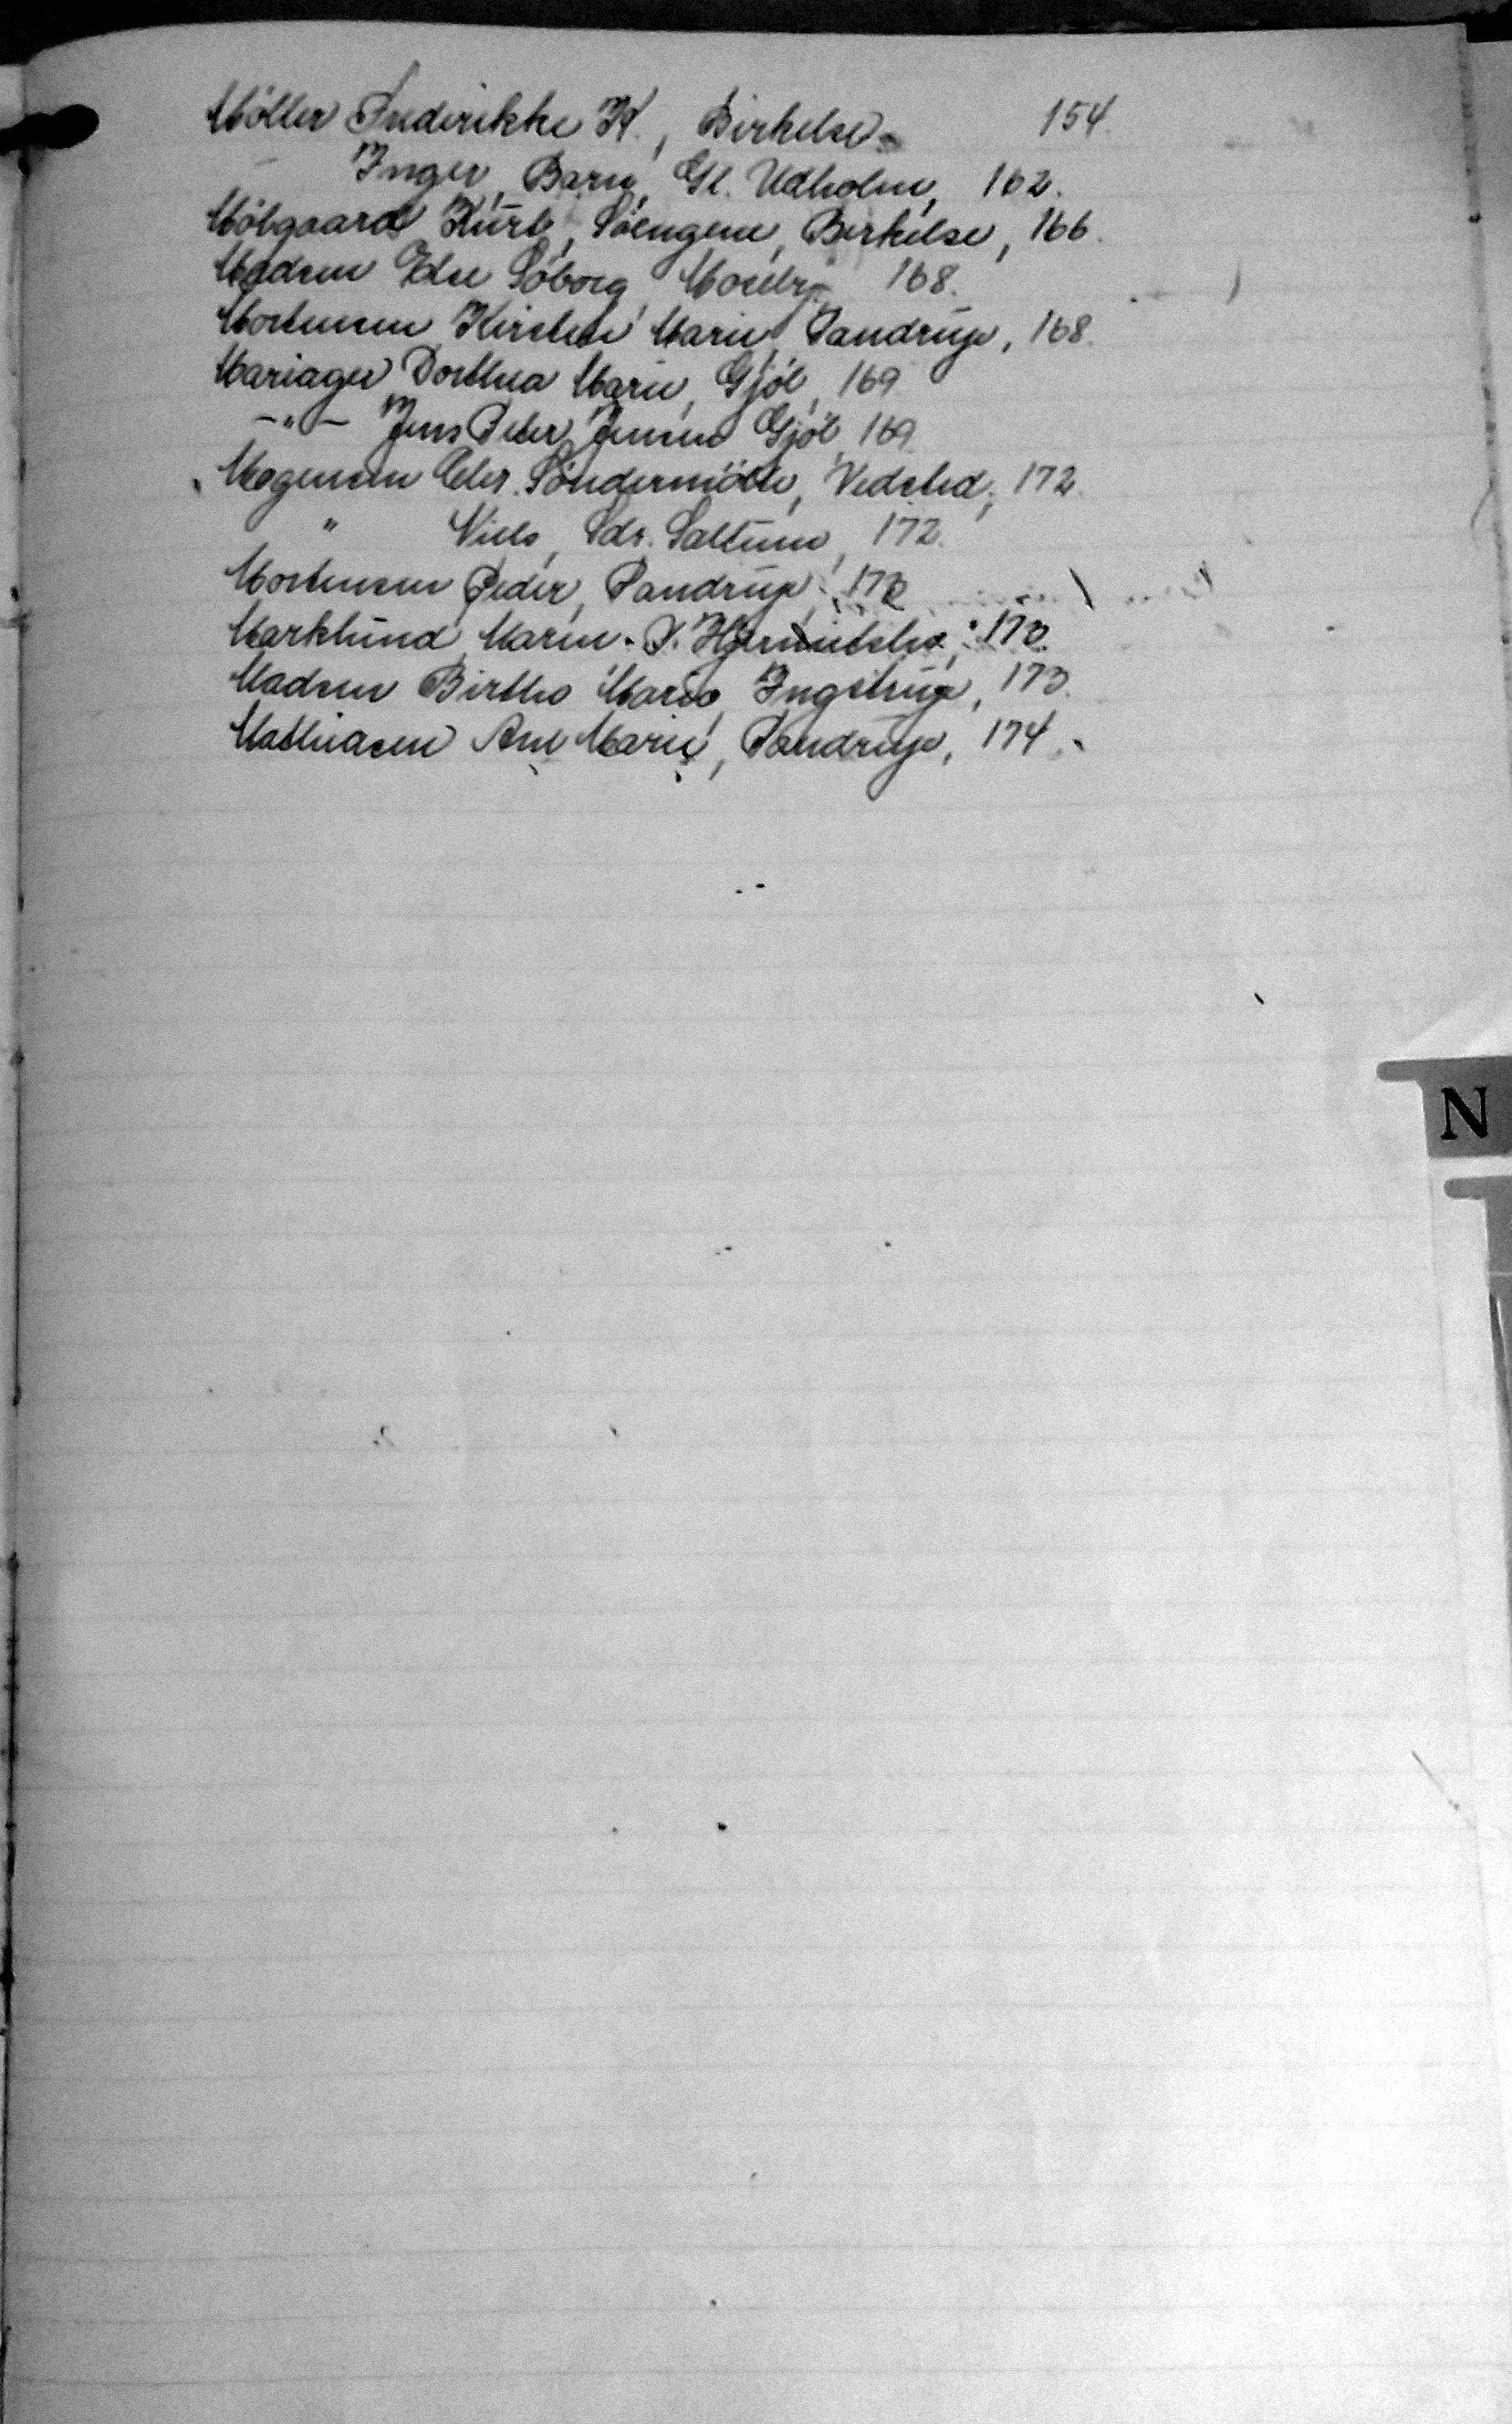 Möller Frederikke K., Birkelse. 154.
- Inger, Barn, Gl. Udholm, 162.
Mölgaard Kurt, Söengene, Birkelse, 166.
Madsen Else Söborg, Moseby 168.
Mortensen Kirsten Marie Pandrup, 168.
Mariager Dorthea Marie, Gjöl, 169
-"- Jens Peter Jensen Gjöl, 169.
Mogensen Chr. Söndermölle, Vedsted, 172.
" Niels, Sdr. Saltum, 172.
Mortensen Peder, Pandrup, 172
Marklund Maren. P. 173.
Madsen Birthe Marie, Ingstrup, 173.
Mathiasen Ane Marie, Pandrup, 174.
N